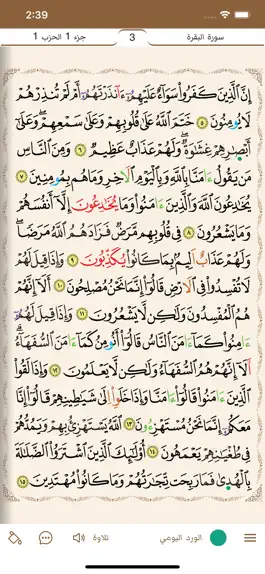 2:39
سورة البقرة 3 جزء 1 الحزب 1
إِنَّ ٱلَّذِينَ كَفَرُواْ سَوَآءٌ عَلَيْهِمُۥٓ ءَآنذَرْتَهُمُۥٓ أَمْ لَمْ تُنذِرْهُمْ
لَا يُومِنُونَ ٥ خَتَمَ ٱللَّهُ عَلَىٰ قُلُوبِهِمْ وَعَلَىٰ سَمْعِهِمْ وَعَلَىٰ
أَبْصَٰرِهِمْ غِشَٰوَةٌ وَلَهُمْ عَذَابٌ عَظِيمٌ ٦ وَمِنَ ٱلنَّاسِ
مَن يَقُولُ ءَامَنَّا بِٱللَّهِ وَبِٱلْيَوْمِ ٱلَاخِرِ وَمَا هُم بِمُومِنِينَ ٧
يُخَٰدِعُونَ ٱللَّهَ وَٱلَّذِينَ ءَامَنُواْ وَمَا يُخَٰدِعُونَ إِلَّآ أَنفُسَهُمْ
وَمَا يَشْعُرُونَ ٨ فِى قُلُوبِهِم مَّرَضٌ فَزَادَهُمُ ٱللَّهُ مَرَضًا
وَلَهُمْ عَذَابٌ اَلِيمٌۢ بِمَا كَانُواْ يُكَذِّبُونَ ٩ وَإِذَا قِيلَ لَهُمْ
لَا تُفْسِدُواْ فِى ٱلَارْضِ قَالُوٓاْ إِنَّمَا نَحْنُ مُصْلِحُونَ ١٠ أَلَآ إِنَّهُمْ
هُمُ ٱلْمُفْسِدُونَ وَلَٰكِن لَّا يَشْعُرُونَ ١١ وَإِذَا قِيلَ لَهُمُۥٓ
ءَامِنُواْ كَمَآ ءَامَنَ ٱلنَّاسُ قَالُوٓاْ أَنُومِنُ كَمَآ ءَامَنَ ٱلسُّفَهَآءُ
أَلَآ إِنَّهُمْ هُمُ ٱلسُّفَهَآءُ وَلَٰكِن لَّا يَعْلَمُونَ ١٢ وَإِذَا لَقُواْ
ٱلَّذِينَ ءَامَنُواْ قَالُوٓاْ ءَامَنَّا وَإِذَا خَلَوِاْ اِلَىٰ شَيَٰطِينِهِمْ قَالُوٓاْ إِنَّا
مَعَكُمُۥٓ إِنَّمَا نَحْنُ مُسْتَهْزِءُونَ ١٣ ٱللَّهُ يَسْتَهْزِئُ بِهِمْ وَيَمُدُّهُمْ
فِى طُغْيَٰنِهِمْ يَعْمَهُونَ ١٤ أُوْلَٰٓئِكَ ٱلَّذِينَ ٱشْتَرَوُاْ ٱلضَّلَٰلَةَ
بِٱلْهُدَىٰ فَمَا رَبِحَت تِّجَٰرَتُهُمْ وَمَا كَانُواْ مُهْتَدِينَ ١٥
الورد اليومي تلاوة